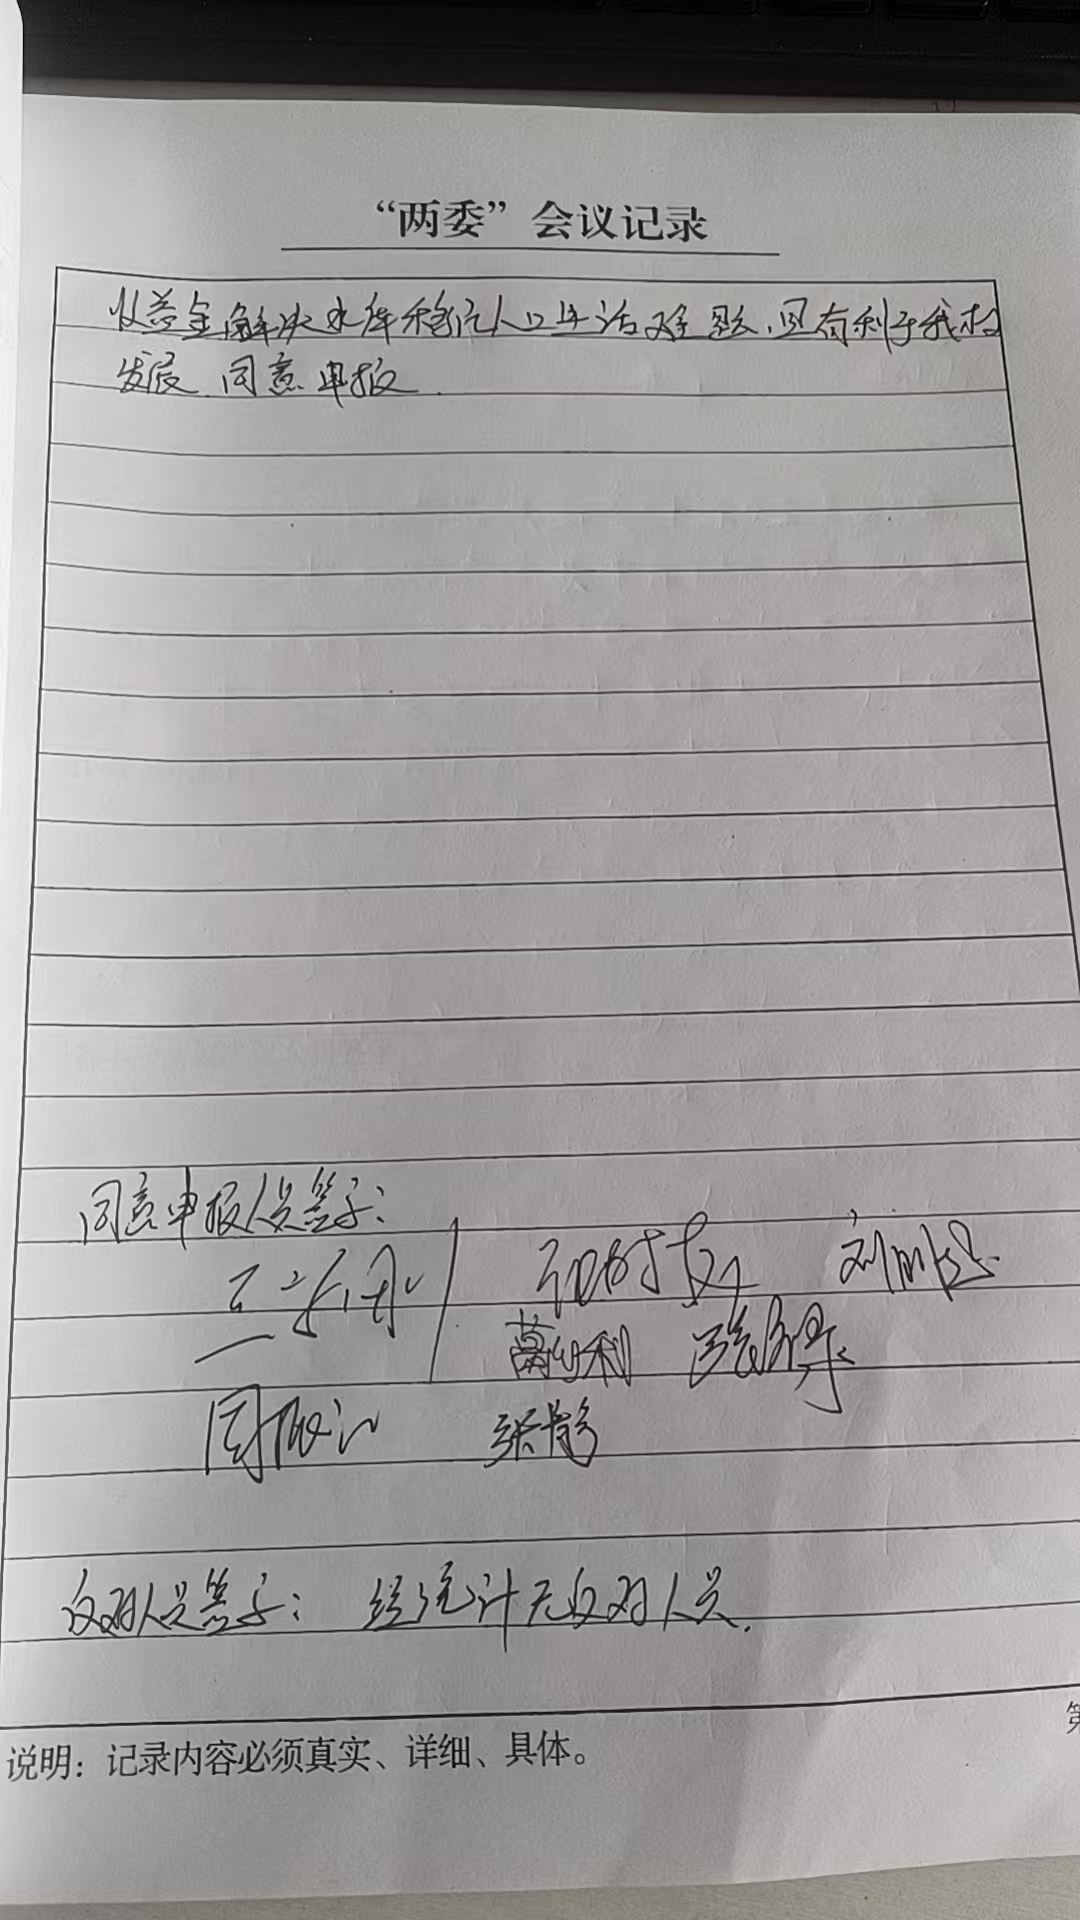 “两委”会议记录
收益金解决水库移民人口生活难题，且有利于我村
发展，同意申报.
同意申报人员签字：
葛 利
张静
反对人员签字： 经统计无反对人员.
第
说明：记录内容必须真实、详细、具体。